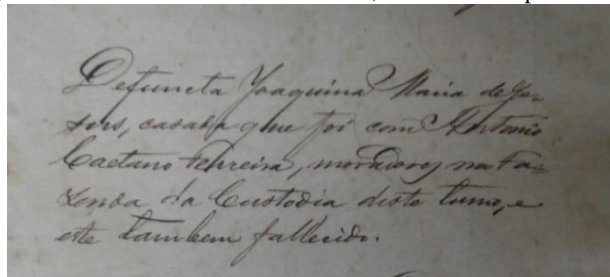 Defuncta Joaquina Maria de Je-
sus, casada que foi com Antonio
Caetano Ferreira, moradores na Fa-
zenda da Custodia deste termo, e
este tambem fallecido.